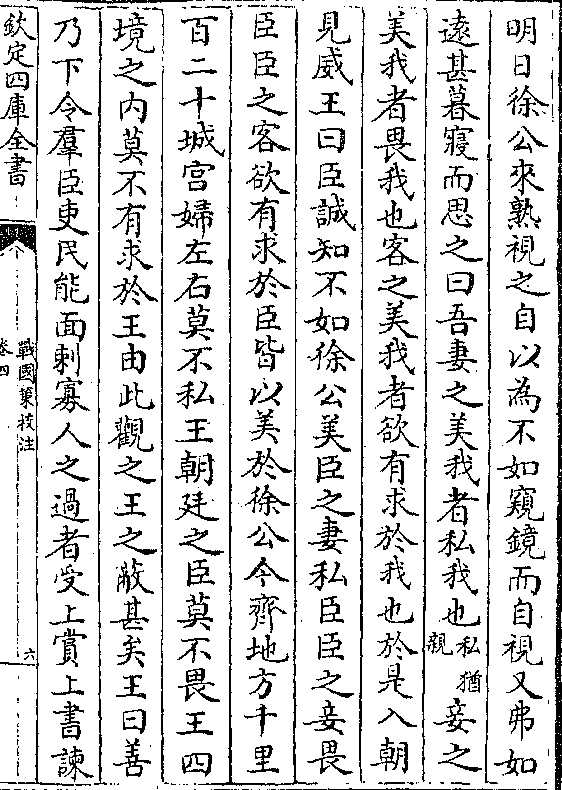 明日徐公來熟視之自以為不如窺鏡而自視又弗如
遠甚暮寢而思之曰吾妻之美我者私我也私猶親妾之
美我者畏我也客之美我者欲有求於我也於是入朝
見威王曰臣誠知不如徐公美臣之妻私臣臣之妾畏
臣臣之客欲有求於臣皆以美於徐公今齊地方千里
百二十城宫婦左右莫不私王朝廷之臣莫不畏王四
境之内莫不有求於王由此觀之王之蔽甚矣王曰善
乃下令羣臣吏民能面刺寡人之過者受上賞上書諫
欽定四庫全書
戰國策校注
卷四
六